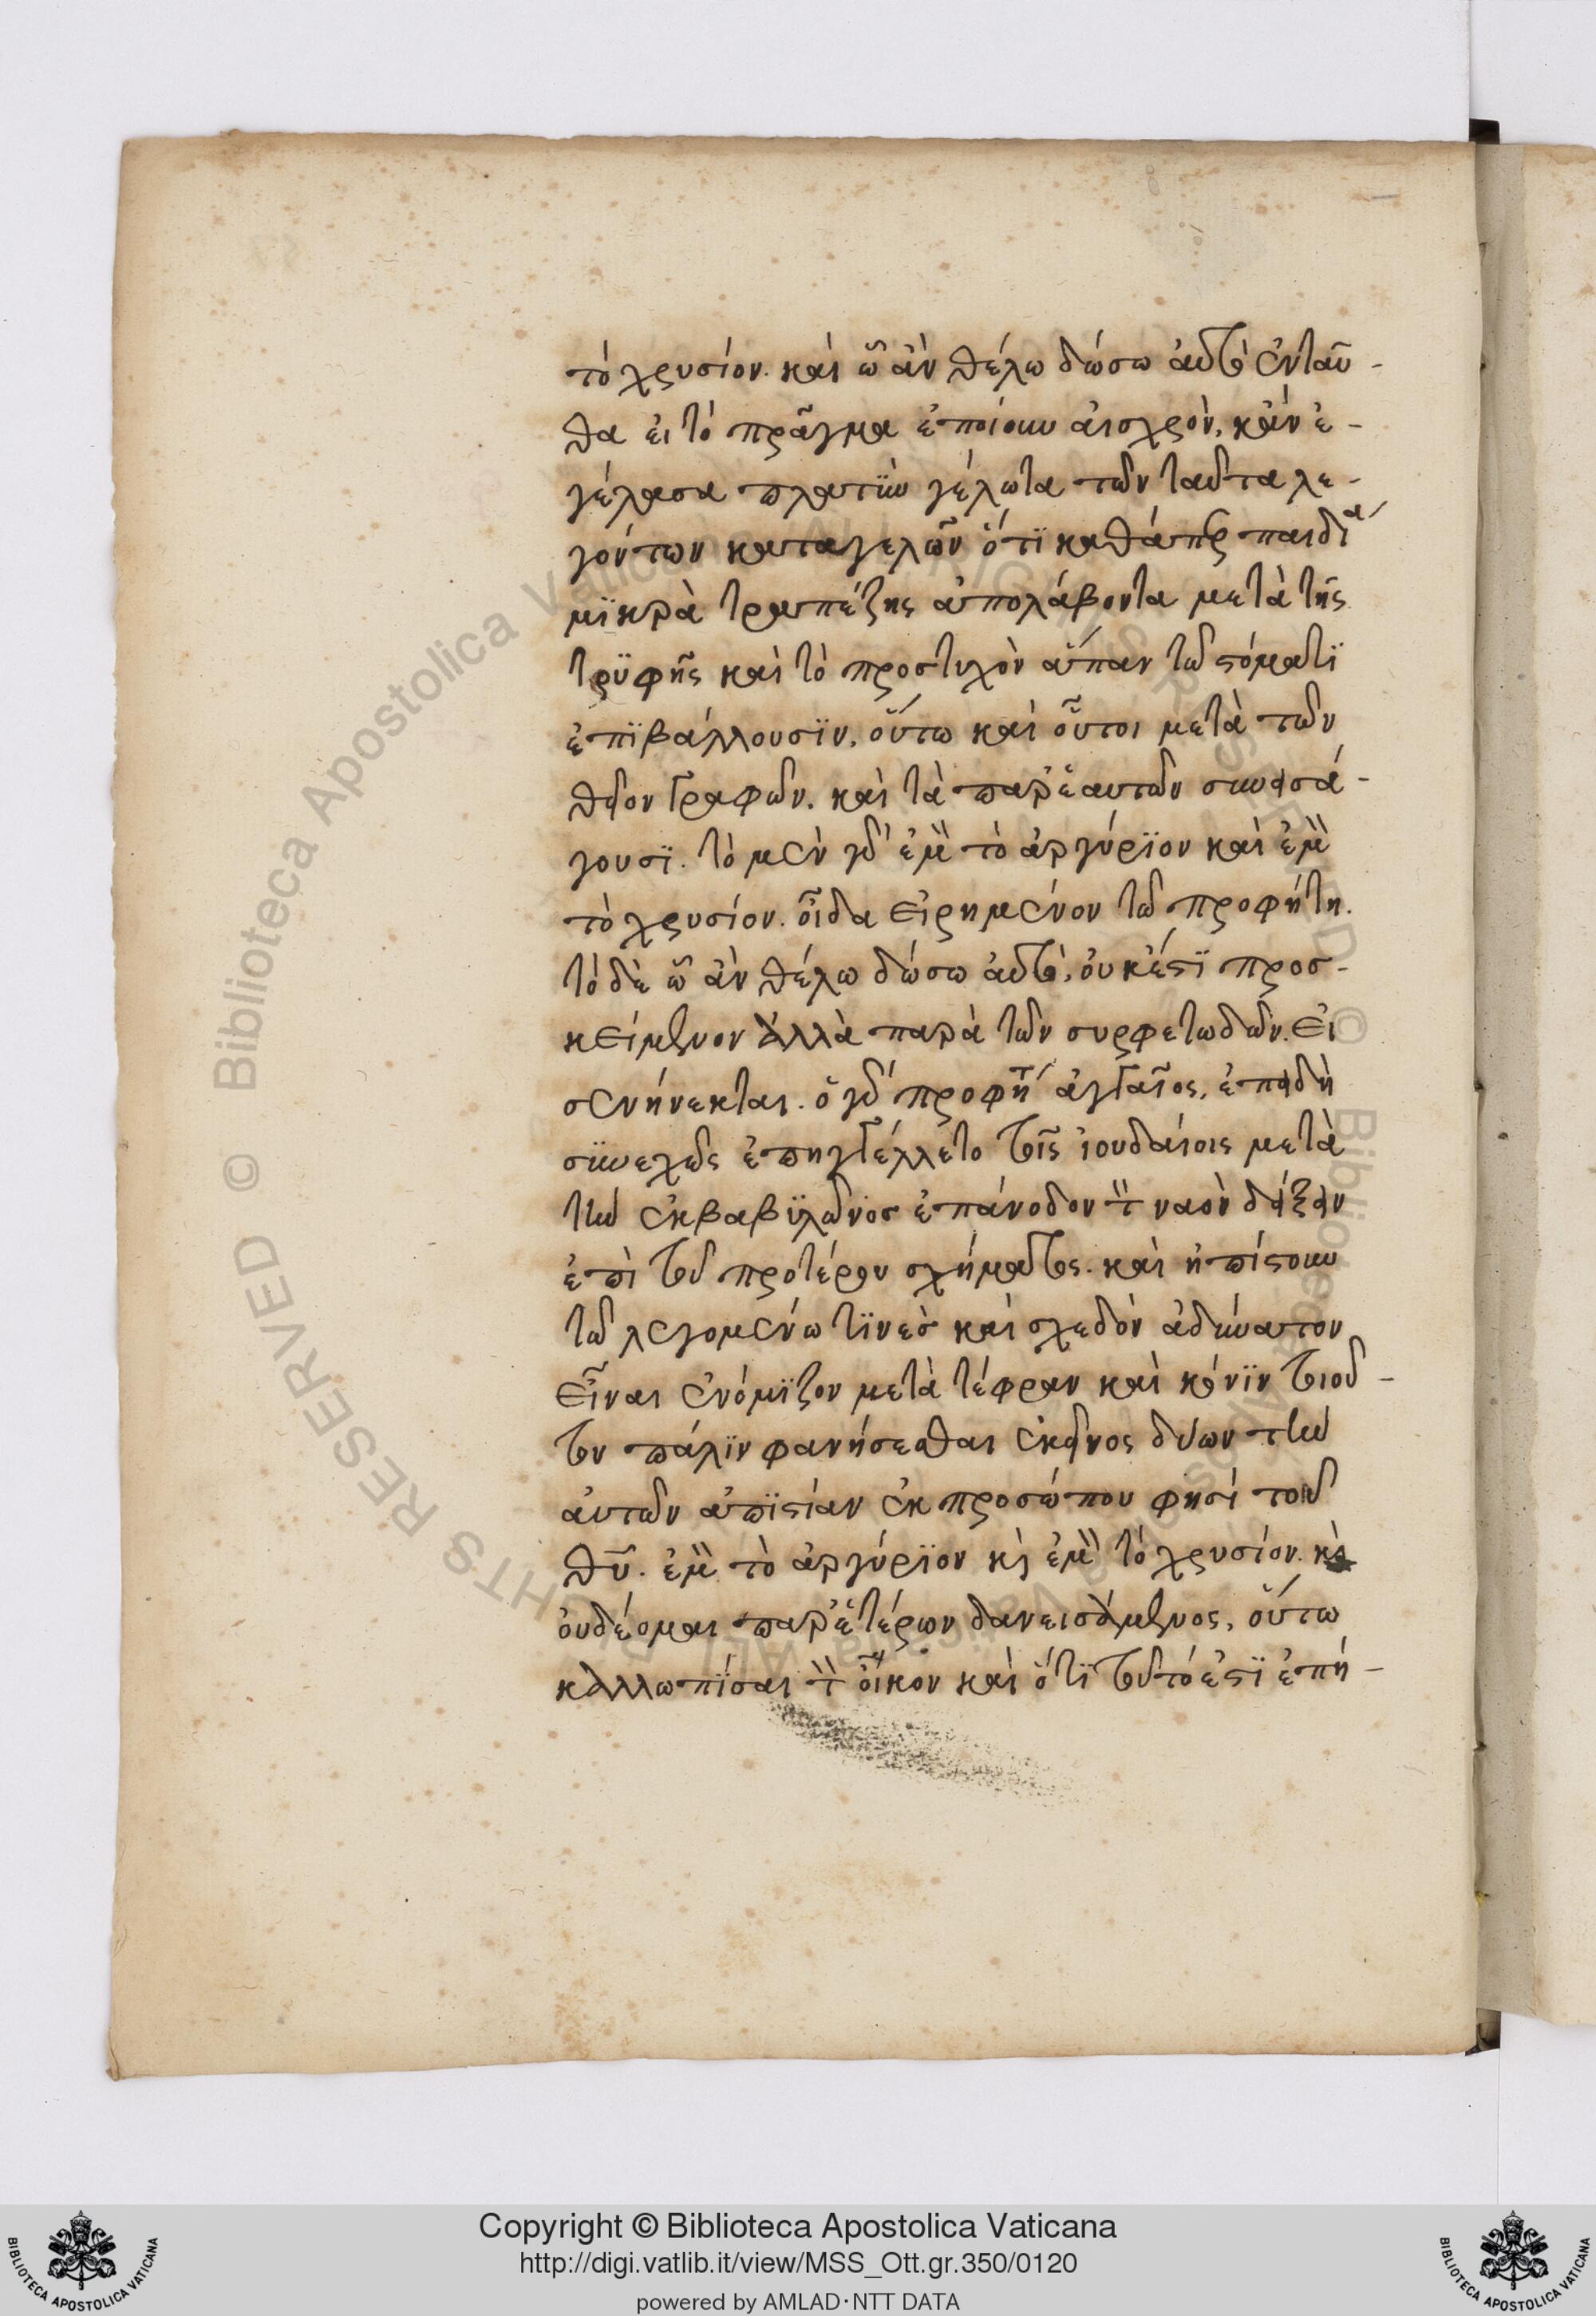 τὸ χρυσίον. καὶ ὧ ἀν θέλω δώσω ἀυτὸ ἐνταῦ-
θα ἐι τὸ πρᾶγμα ἐποίουν ἀισχρὸν, κἀν ἐ-
γέλασα πλατὺν γέλωτα τῶν ταῦτα λε-
γόντων καταγελῶν ὅτϊ καθάπερ παιδία
μϊκρὰ τραπέζης ἀπολάβοντα μετὰ τῆς
τρϋφῆς καὶ τὸ προστυχὸν ἅπαν τῶ στόματϊ
ἐπϊβάλλουσϊν, οὕτω καὶ οὗτοι μετὰ τῶν
θείον γραφῶν. καὶ τὰ παρ' ἑαυτῶν συνεισά-
γουσϊ. τὸ μὲν γὰρ ἐμὸν τὸ ἀργύρϊον καὶ ἐμὸν
τὸ χρυσίον. οἶδα εἰρημένον τῶ προφήτη.
τὸ δὲ ὧ ἀν θέλω δώσω ἀυτὸ, ὀυκέστϊ προσ-
κείμενον ἀλλὰ παρὰ τῶν συρφετωδῶν. Εἰ
σενήνεκται. ὁ γὰρ προφήτης ἀγγαῖος, ἐπειδὴ
συνεχῶς ἐπηγγέλλετο τοῖς ἰουδαίοις μετὰ
τὴν ἐκβαβϋλῶνος ἐπάνοδον τὸν ναὸν δείξειν
ἐπὶ τοῦ προτέρου σχήματος. καὶ ἠπίστουν
τῶ λεγομένω τϊνὲσ καὶ σχεδὸν ἀδύνατον
εἶναι ἐνόμϊζον μετὰ τέφραν καὶ κόνϊν τοιοῦ-
τον πάλϊν φανήσεσθαι ἐκεῖνος δεικνύων τὴν
ἀυτῶν ἀπϊστίαν ἐκ προσώπου φησὶ τοῦ
θυ. ἐμὸν τὸ ἀργύρϊον κὶ ἐμὸν τὸ χρυσίον. κὶ
ὀυδέομαι παρ' ἑτέρων δανεισάμενος, οὕτω
καλλωπίσαι τὸν οἶκον καὶ ὅτϊ τοῦτό ἐστϊ ἐπή-
Copyright © Biblioteca Apostolica Vaticana
http://digi.vatlib.it/view/MSS_Ott.gr.350/0120
powered by AMLAD·NTT DATA